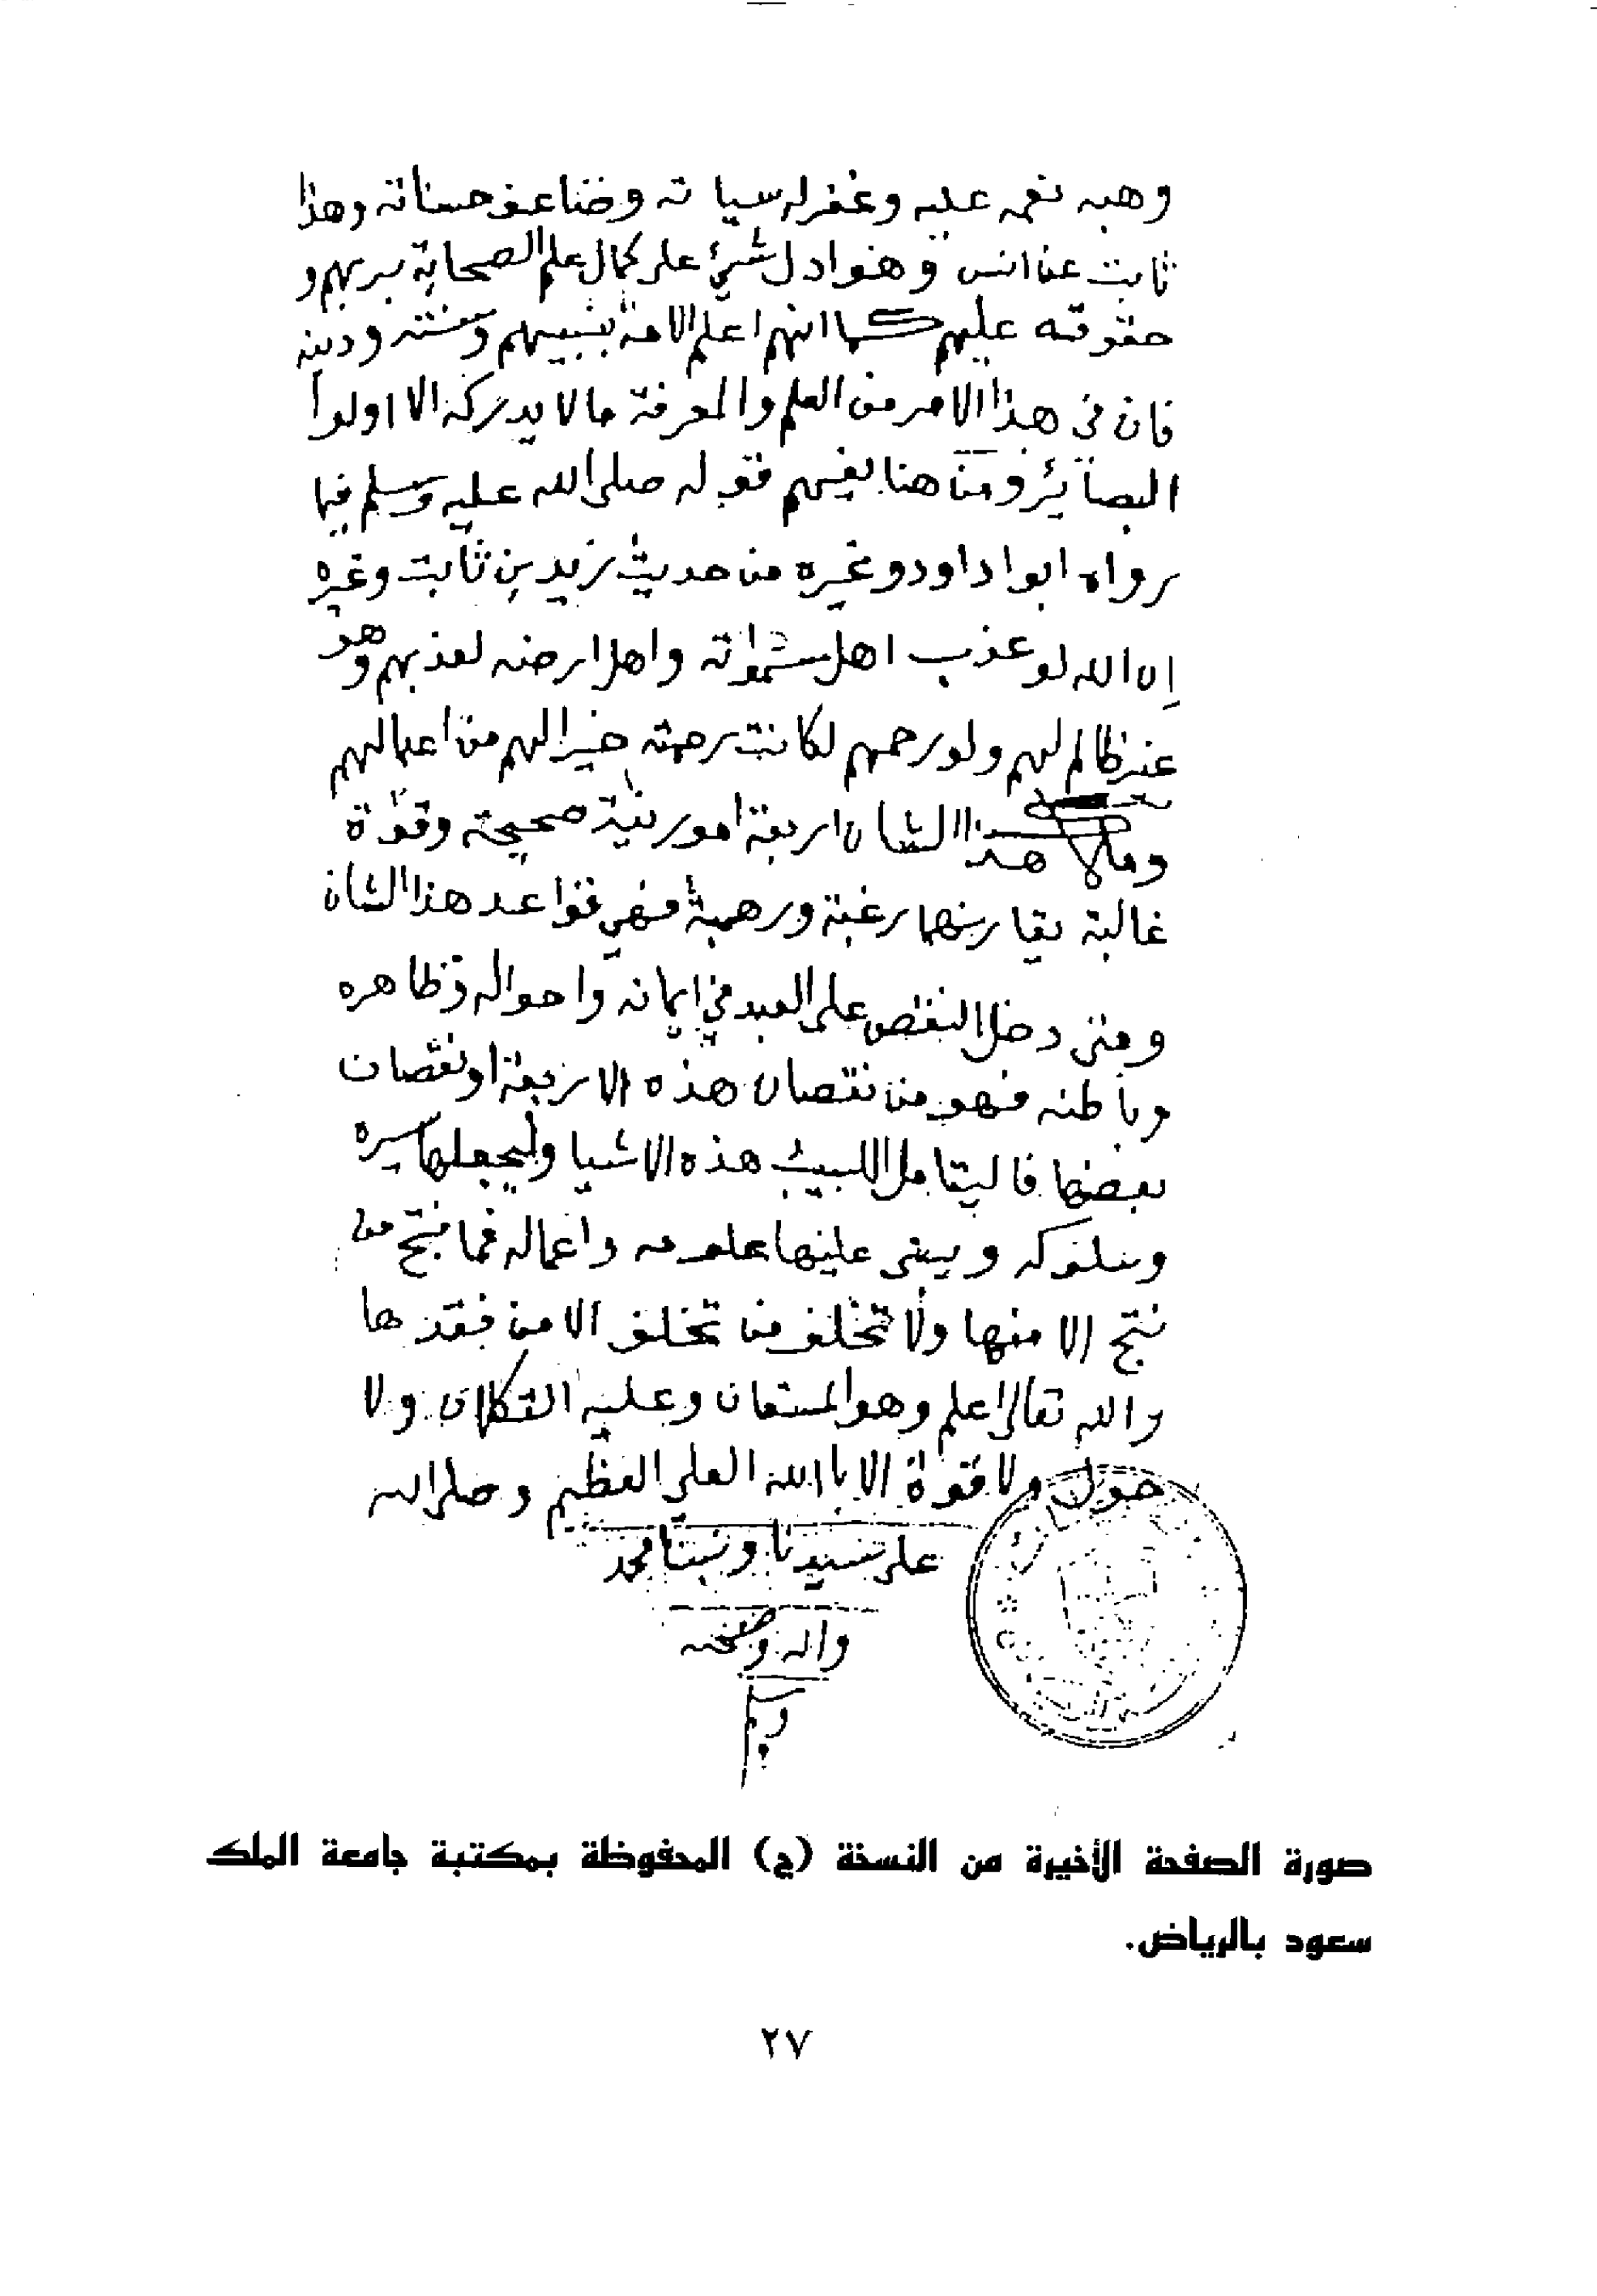 وهبه نعمه عليه وغفرله سياته وضاعف حسناته وهذا
ثابت عن انس وهو ادل شيئ على كمال علم الصحابة بربهم و
حقوقه عليهم كما انهم اعلم الامة بنبيهم وسنته ودينه
فان في هذا الامر من العلم والمعرفة ما لا يدركه الا اولوا
البصائر ومن هنا يفهم قوله صلى الله عليه وسلم فيما
رواه ابوا داود وغيره من حديث زيد بن ثابت وغيره
ان الله لو عذب اهل سمواته واهل ارضه لعذبهم وهو
غير ظالم لهم ولو رحمهم لكانت رحمته خيرا لهم من اعمالهم
وملاك هذا الشان اربعة امور نية صحيحة وقوة
غالبة يقارنهما رغبة ورهبة فهي قواعد هذا الشان
ومتى دخل النقص على العبد في ايمانه واحواله وظاهره
وباطنه فهو من نقصان هذه الاربعة او نقصان
بعضها فاليتامل اللبيب هذه الاشيا وليجعلها سيره
وسلوكه ويبني عليها علومه واعماله فما نتج من
نتج الا منها ولا تخلف من تخلف الا من فقدها
والله تعالى اعلم وهو المستعان وعليه التكلان ولا
حول ولا قوة الا باالله العلي العظيم وصلى الله
على سيدنا ونبينا محمد
واله وصحبه
وسلم
صورة الصفحة الأخيرة من النسخة (ج) المحفوظة بمكتبة جامعة الملك
سعود بالرياض.
٢٧